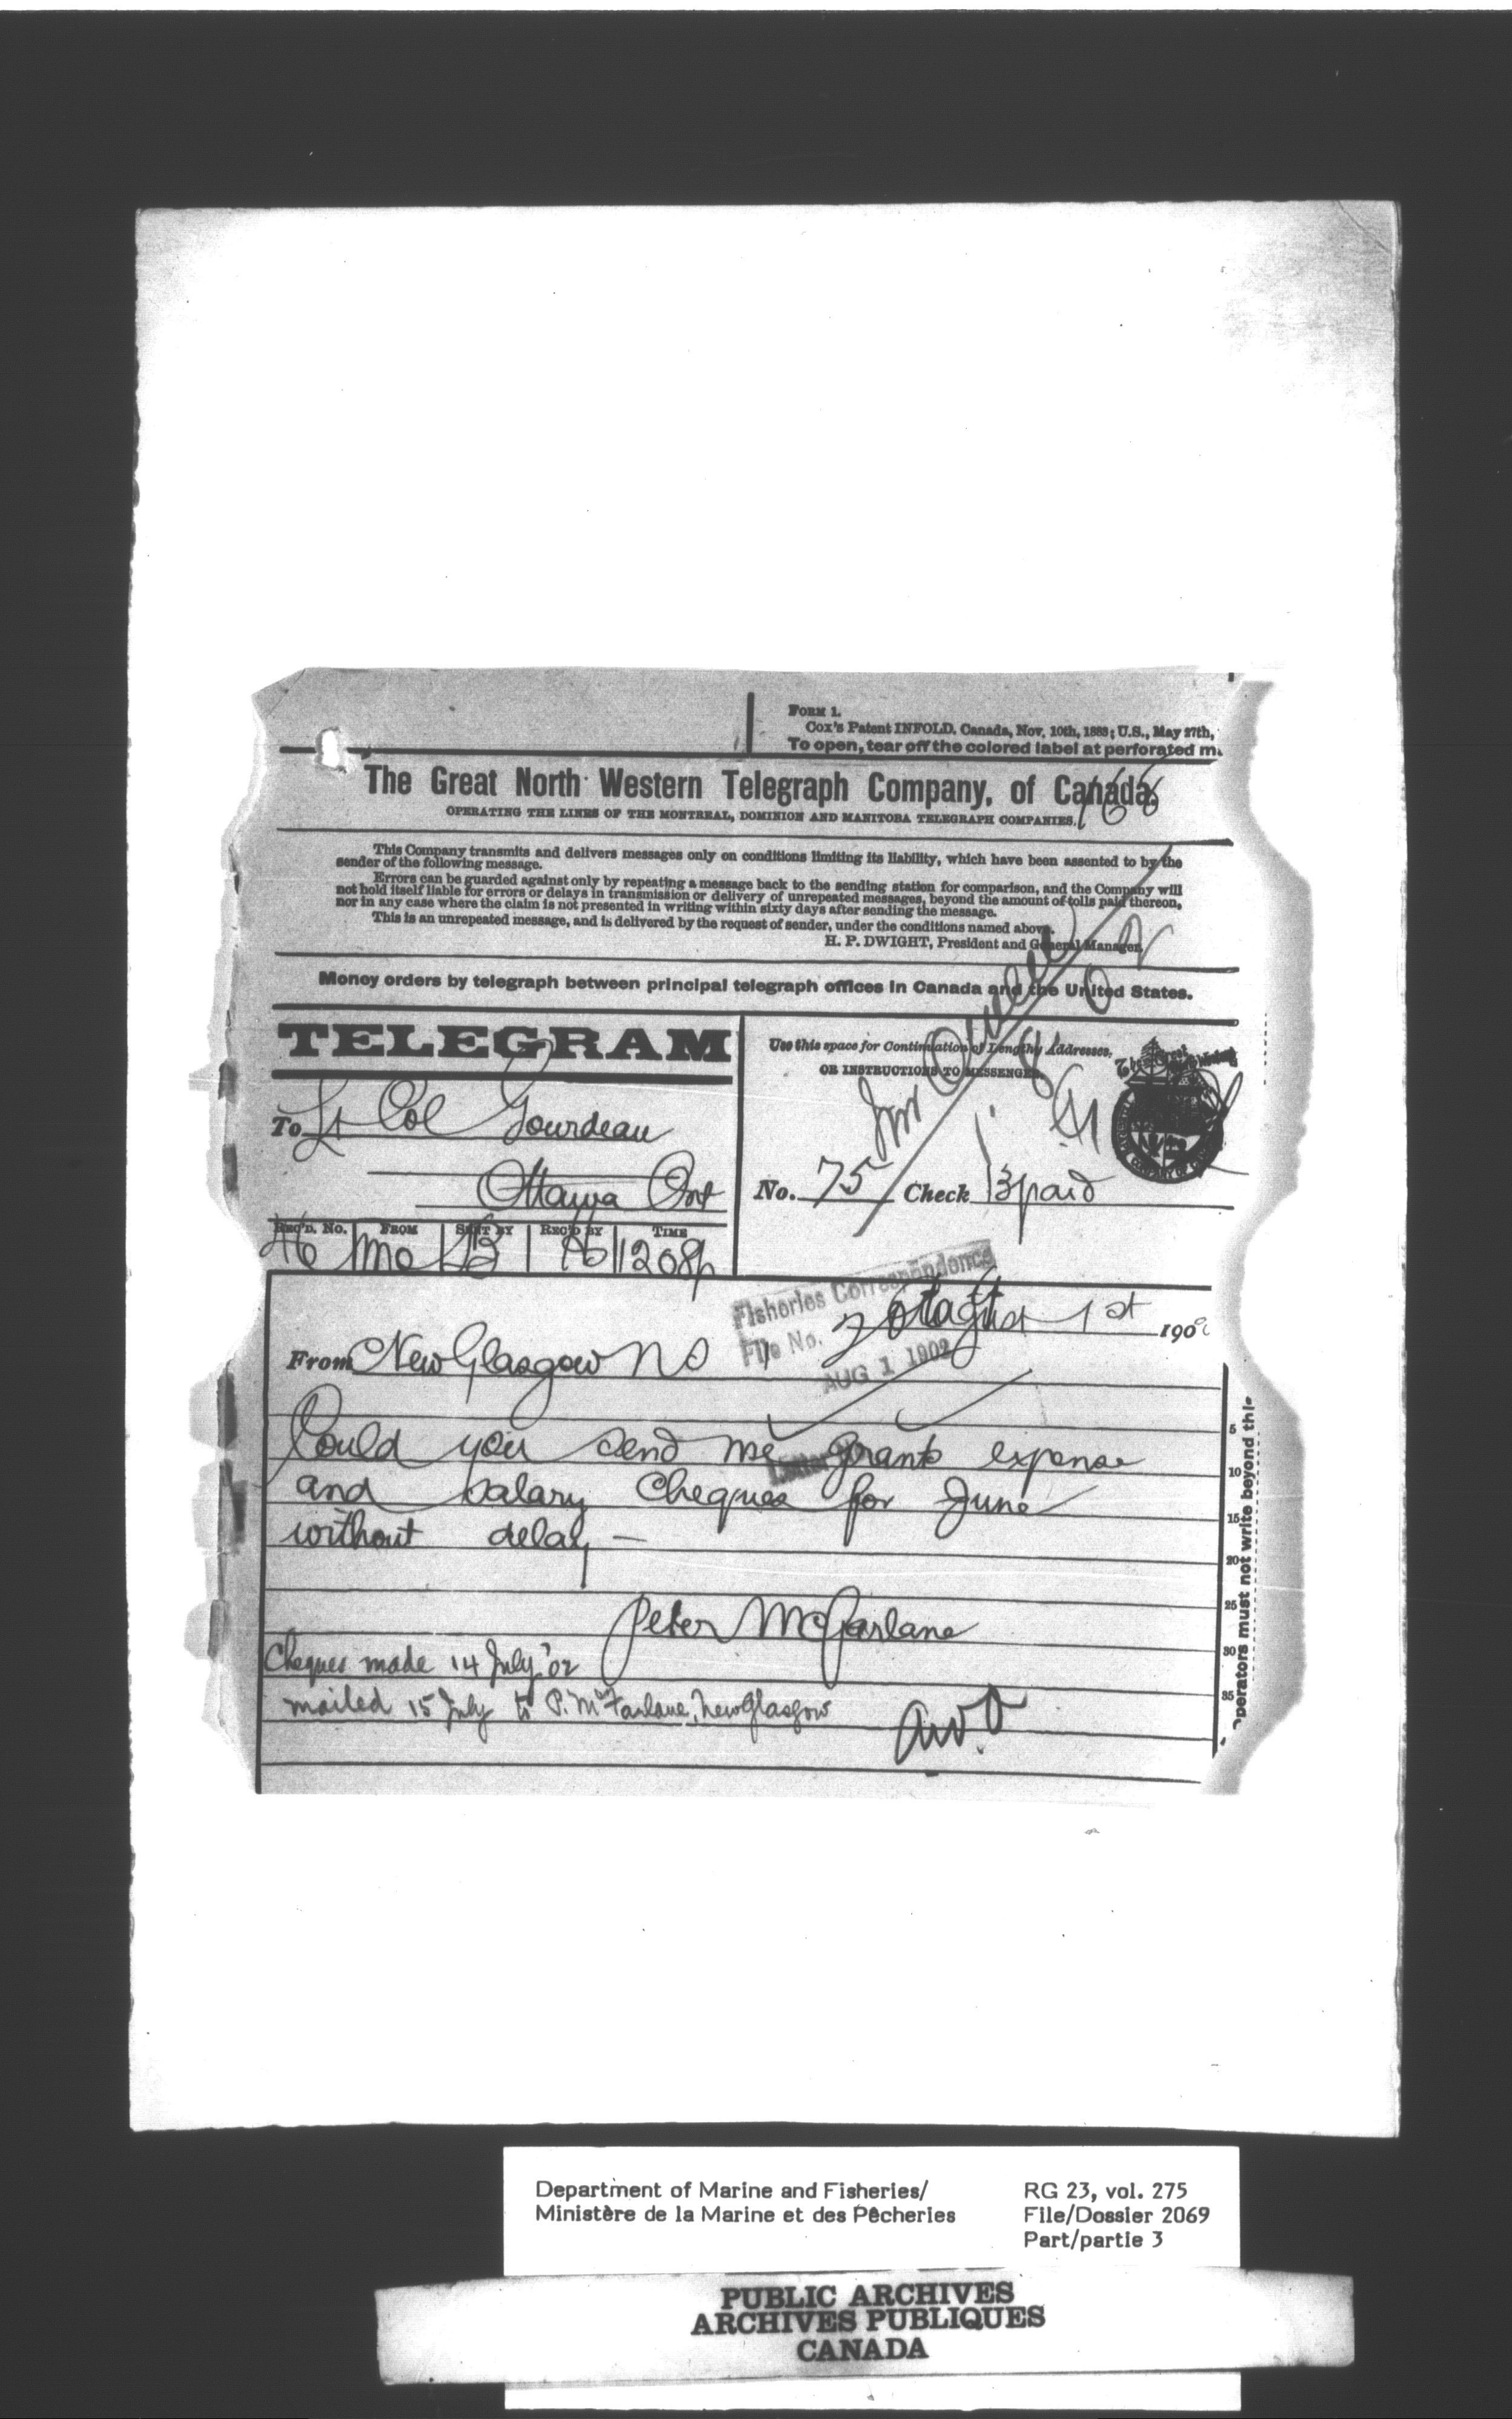 FORM 1.
Cox's Patent INFOLD. Canada, Nov. 10th, 1883; U.S., May 27th,
To open, tear off the colored label at perforated
The Great North Western Telegraph Company, of Canada.
166
OPERATING THE LINES OF THE MONTREAL, DOMINION AND MANITOBA TELEGRAPH COMPANIES.
This Company transmits and delivers messages only on conditions limiting its liability, which have been assented to by the
sender of the following message.
Errors can be guarded against only by repeating a message back to the sending station for comparison, and the Company will
not hold itself liable for errors or delays in transmission or delivery of unrepeated messages, beyond the amount of tolls paid thereon,
nor in any case where the claim is not presented in writing within sixty days after sending the message.
This is an unrepeated message, and is delivered by the request of sender, under the conditions named above.
H. P. DWIGHT, President and General Manager.
Money orders by telegraph between principal telegraph offices in Canada and the United States.
TELEGRAM
Use this space for Continuation of Lengthy Addresses,
OR INSTRUCTIONS TO MESSENGER.
To Lt Col Gourdeau
Ottawa Ont
No. 75 Check 13 paid
REC'D. No. FROM SENT BY REC'D BY TIME
46 Mo 1208p
Fisheries Correspondence
File No.
AUG 1 1902
1st 190
From New Glasgow NS
Could you send me Grants expense
and salary cheques for June
without delay —
Peter McFarlane
Cheques made 14 July '02
mailed 15 July to P. McFarlane, New Glasgow
5
10
15
20
25
30
35
Operators must not write beyond this
Department of Marine and Fisheries/
Ministère de la Marine et des Pêcheries
RG 23, vol. 275
File/Dossier 2069
Part/partie 3
PUBLIC ARCHIVES
ARCHIVES PUBLIQUES
CANADA